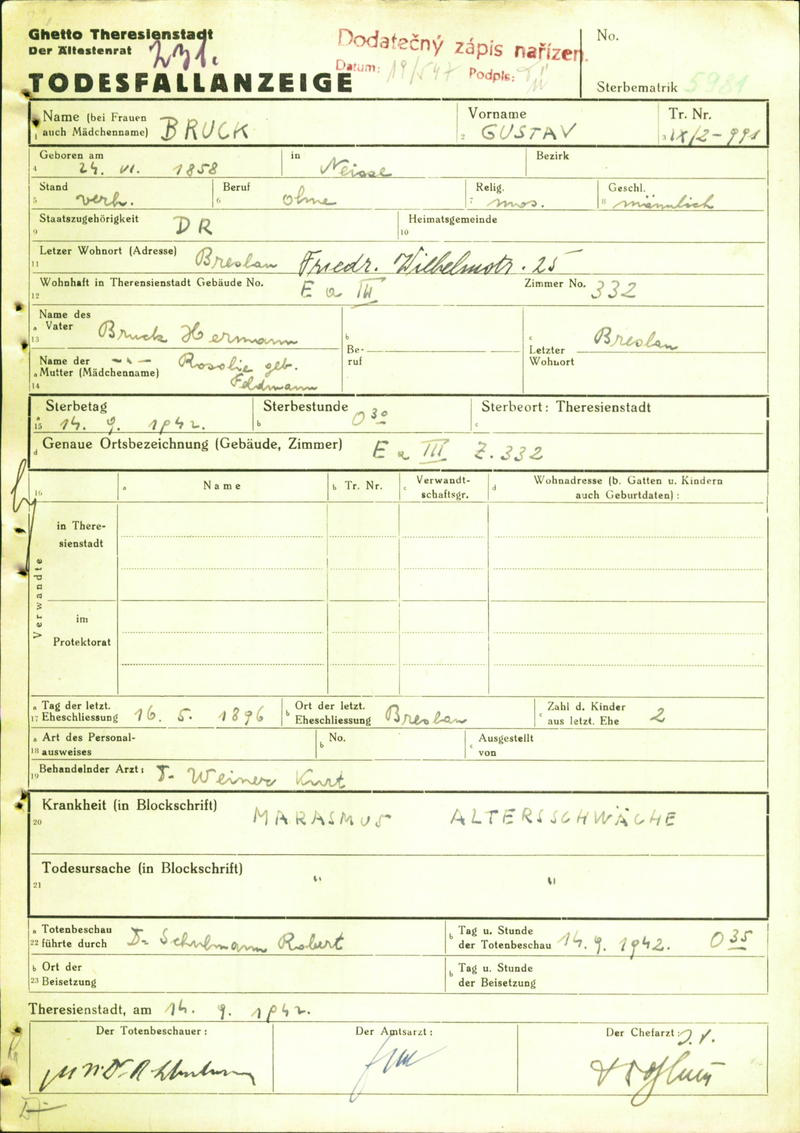 Ghetto Theresienstadt
Der Ältestenrat
231.
TODESFALLANZEIGE
Dodatečný zápis nařízen.
Datum: 19/5 47 Podpis:
No.
Sterbematrik 5981
Name (bei Frauen auch Mädchenname) BRUCK
1
Vorname
2 GUSTAV
Tr. Nr.
3 IX/2-991
Geboren am in Bezirk
4 24. VI. 1858 Neisse
Stand Beruf Relig. Geschl.
5 verh. 6 ohne 7 mos. 8 männlich
Staatszugehörigkeit DR Heimatsgemeinde
9 10
Letzer Wohnort (Adresse) Breslau Friedr. Wilhelmstr. 25
11
Wohnhaft in Theresienstadt Gebäude No. E a III Zimmer No. 332
12
Name des
a Vater Bruck Hermann
13
b Beruf
c Letzter Wohnort Breslau
Name der
a Mutter (Mädchenname) Rosalie geb.
14 Feldmann
a Sterbetag Sterbestunde 0 30 Sterbeort: Theresienstadt
15 14. 9. 1942. b c
Genaue Ortsbezeichnung (Gebäude, Zimmer) E a III Z. 332
d
16 a Name b Tr. Nr. c Verwandt-
schaftsgr. d Wohnadresse (b. Gatten u. Kindern
auch Geburtdaten):
Verwandte
in There-
sienstadt
im
Protektorat
a Tag der letzt.
17 Eheschliessung 16. 5. 1896
b Ort der letzt.
Eheschliessung Breslau
c Zahl d. Kinder
aus letzt. Ehe 2
a Art des Personal-
18 ausweises
b No.
c Ausgestellt
von
Behandelnder Arzt: Dr. Weiner Kurt
19
Krankheit (in Blockschrift) MARASMUS ALTERSSCHWÄCHE
20
Todesursache (in Blockschrift) " "
21
a Totenbeschau
22 führte durch Dr. Schulmann Robert
b Tag u. Stunde
der Totenbeschau 14. 9. 1942. 0 35
b Ort der
23 Beisetzung
b Tag u. Stunde
der Beisetzung
Theresienstadt, am 14. 9. 1942.
Der Totenbeschauer: Der Amtsarzt: Der Chefarzt: